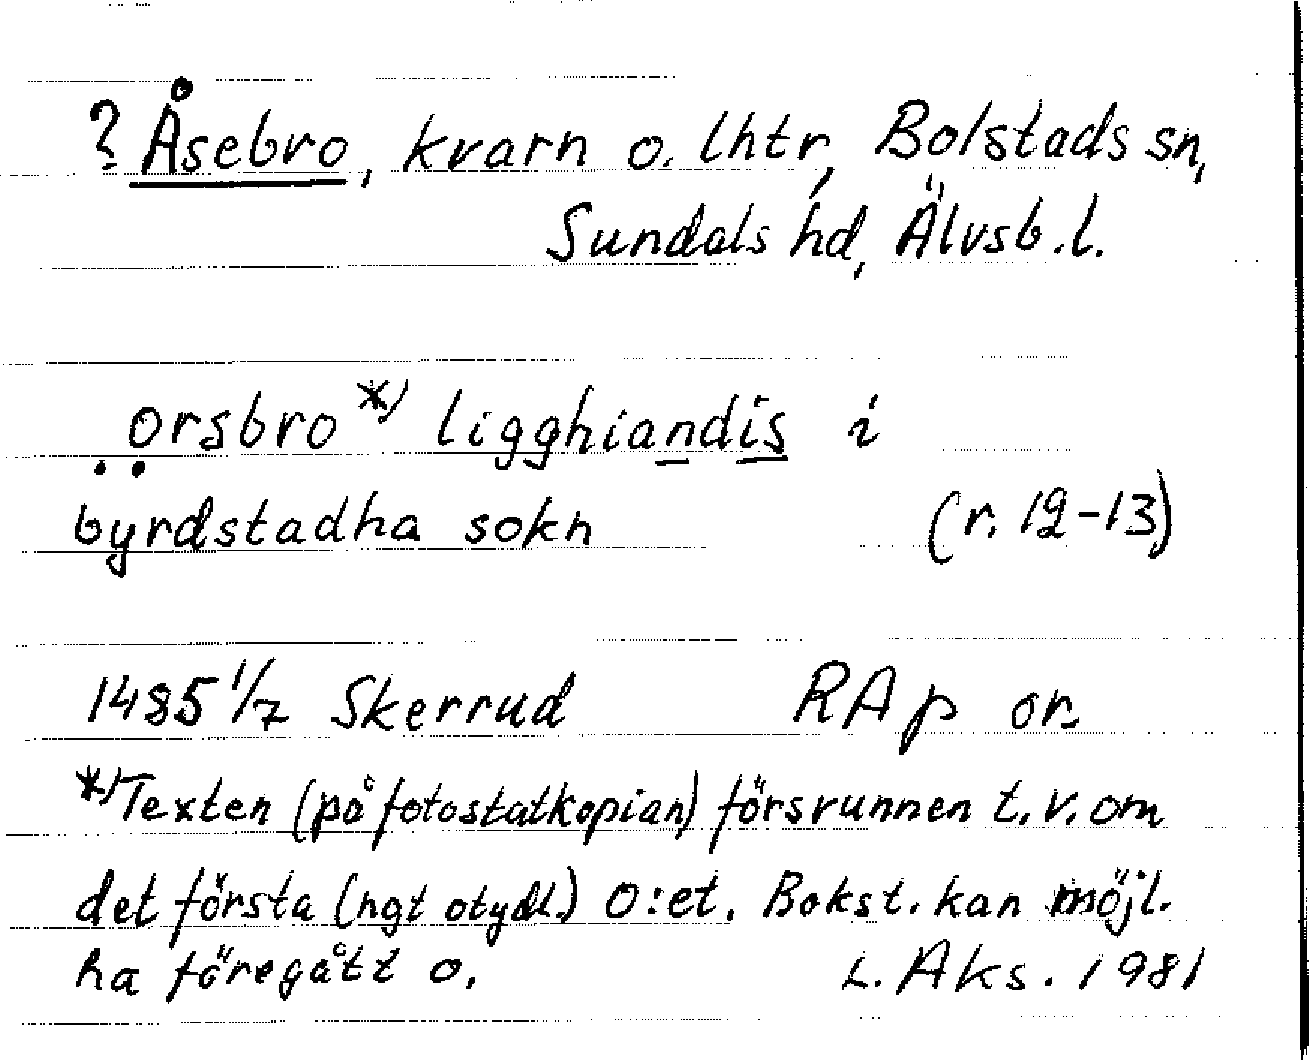 ? Åsebro, kvarn o. lhtr, Bolstads sn,
Sundals hd, Älvsb. l.
orsbro *) ligghiandis i
byrdstadha sokn (r. 12-13)
1485 1/7 Skerrud RAp or.
*) Texten (på fotostatkopian) försvunnen t. v. om
det första (ngt otydl.) o:et. Bokst. kan möjl.
ha föregått o. L. Aks. 1981